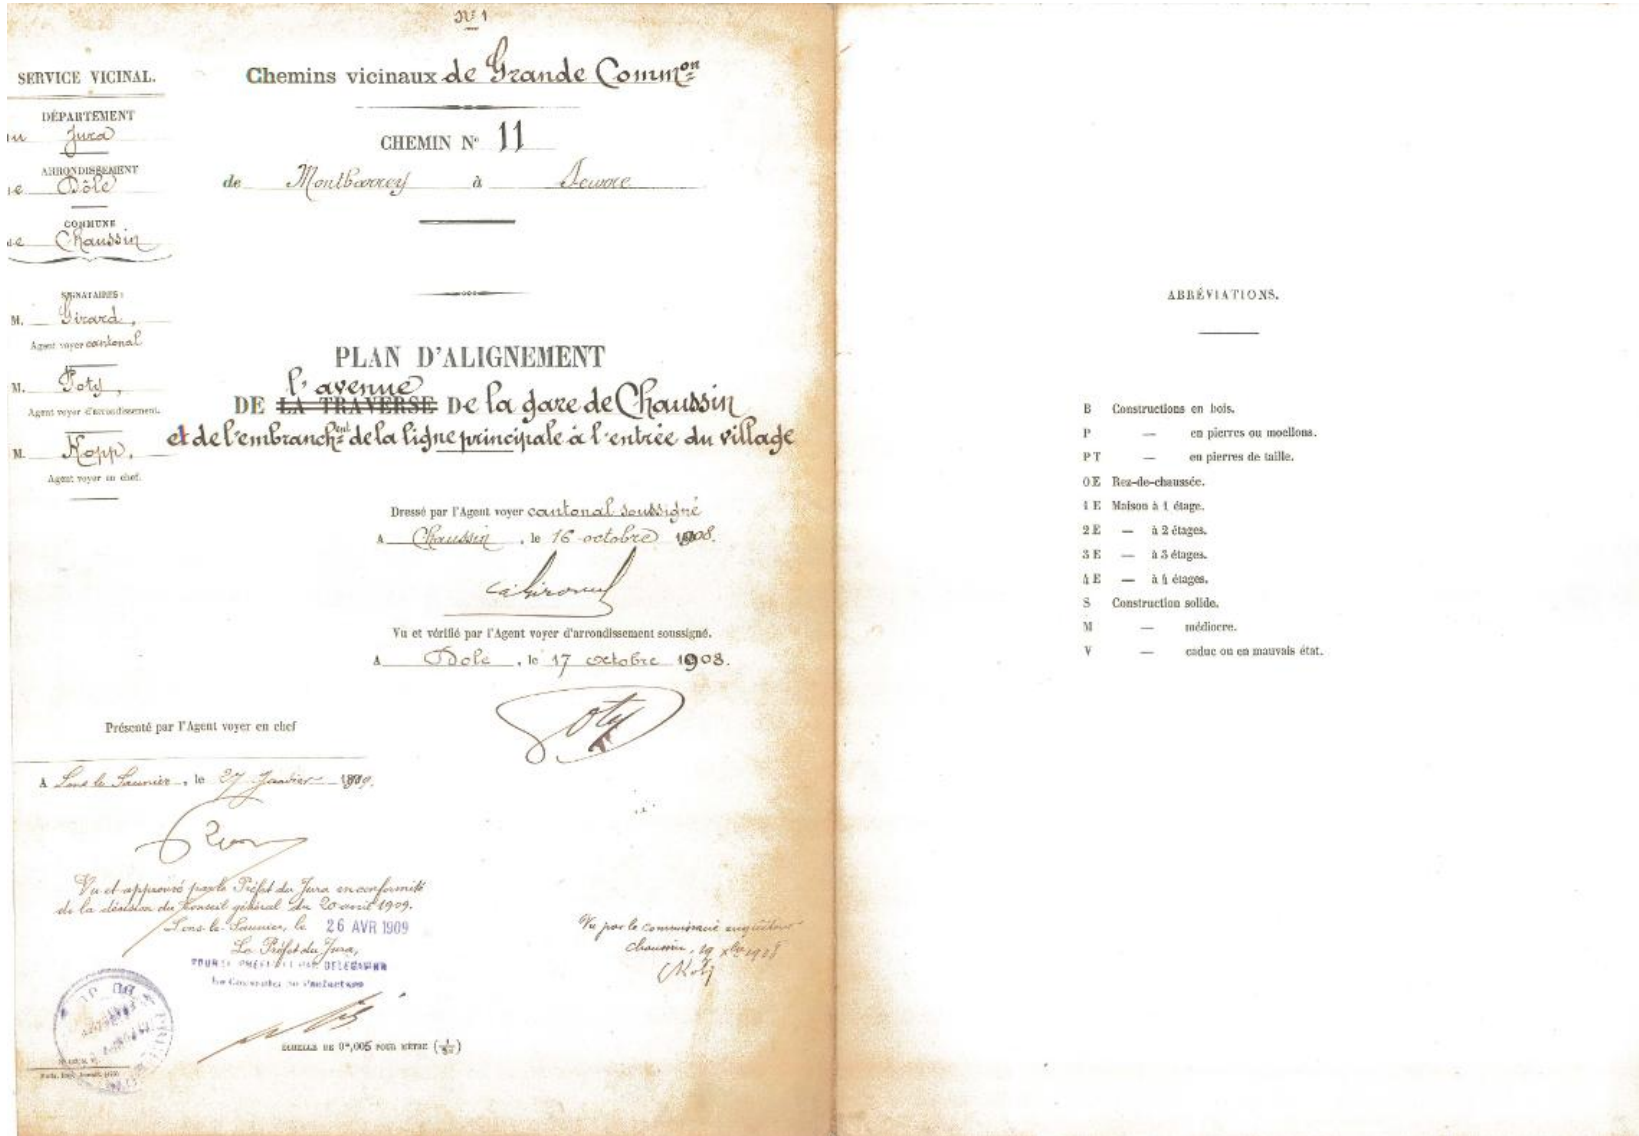 N° 1
SERVICE VICINAL.
DÉPARTEMENT
Jura
ARRONDISSEMENT
Dôle
COMMUNE
Chaussin
SIGNATAIRES :
M. Girard,
Agent voyer cantonal
M. Poty,
Agent voyer d'arrondissement.
M. Kopp,
Agent voyer en chef.
Chemins vicinaux de Grande Comm^on
CHEMIN N° 11
de Montbarrey à Seurre
PLAN D'ALIGNEMENT
l'avenue
DE LA TRAVERSE De la gare de Chaussin
et de l'embranch^ent de la ligne principale à l'entrée du village
Dressé par l'Agent voyer cantonal soussigné
A Chaussin, le 16 octobre 1908.
Vu et vérifié par l'Agent voyer d'arrondissement soussigné.
A Dole, le 17 octobre 1908.
Poty
Présenté par l'Agent voyer en chef
A Lons le Saunier, le 27 Janvier 1909.
Vu et approuvé par le Préfet du Jura en conformité
de la décision du Conseil général du 20 avril 1909.
Lons-le-Saunier, le 26 AVR 1909
Le Préfet du Jura,
Vu par le commissaire enquêteur
Chaussin, 19 x^bre 1908
ÉCHELLE DE 0^m,005 POUR MÈTRE
ABRÉVIATIONS.
B Constructions en bois.
P — en pierres ou moellons.
PT — en pierres de taille.
0 E Rez-de-chaussée.
1 E Maison à 1 étage.
2 E — à 2 étages.
3 E — à 3 étages.
4 E — à 4 étages.
S Construction solide.
M — médiocre.
V — caduc ou en mauvais état.